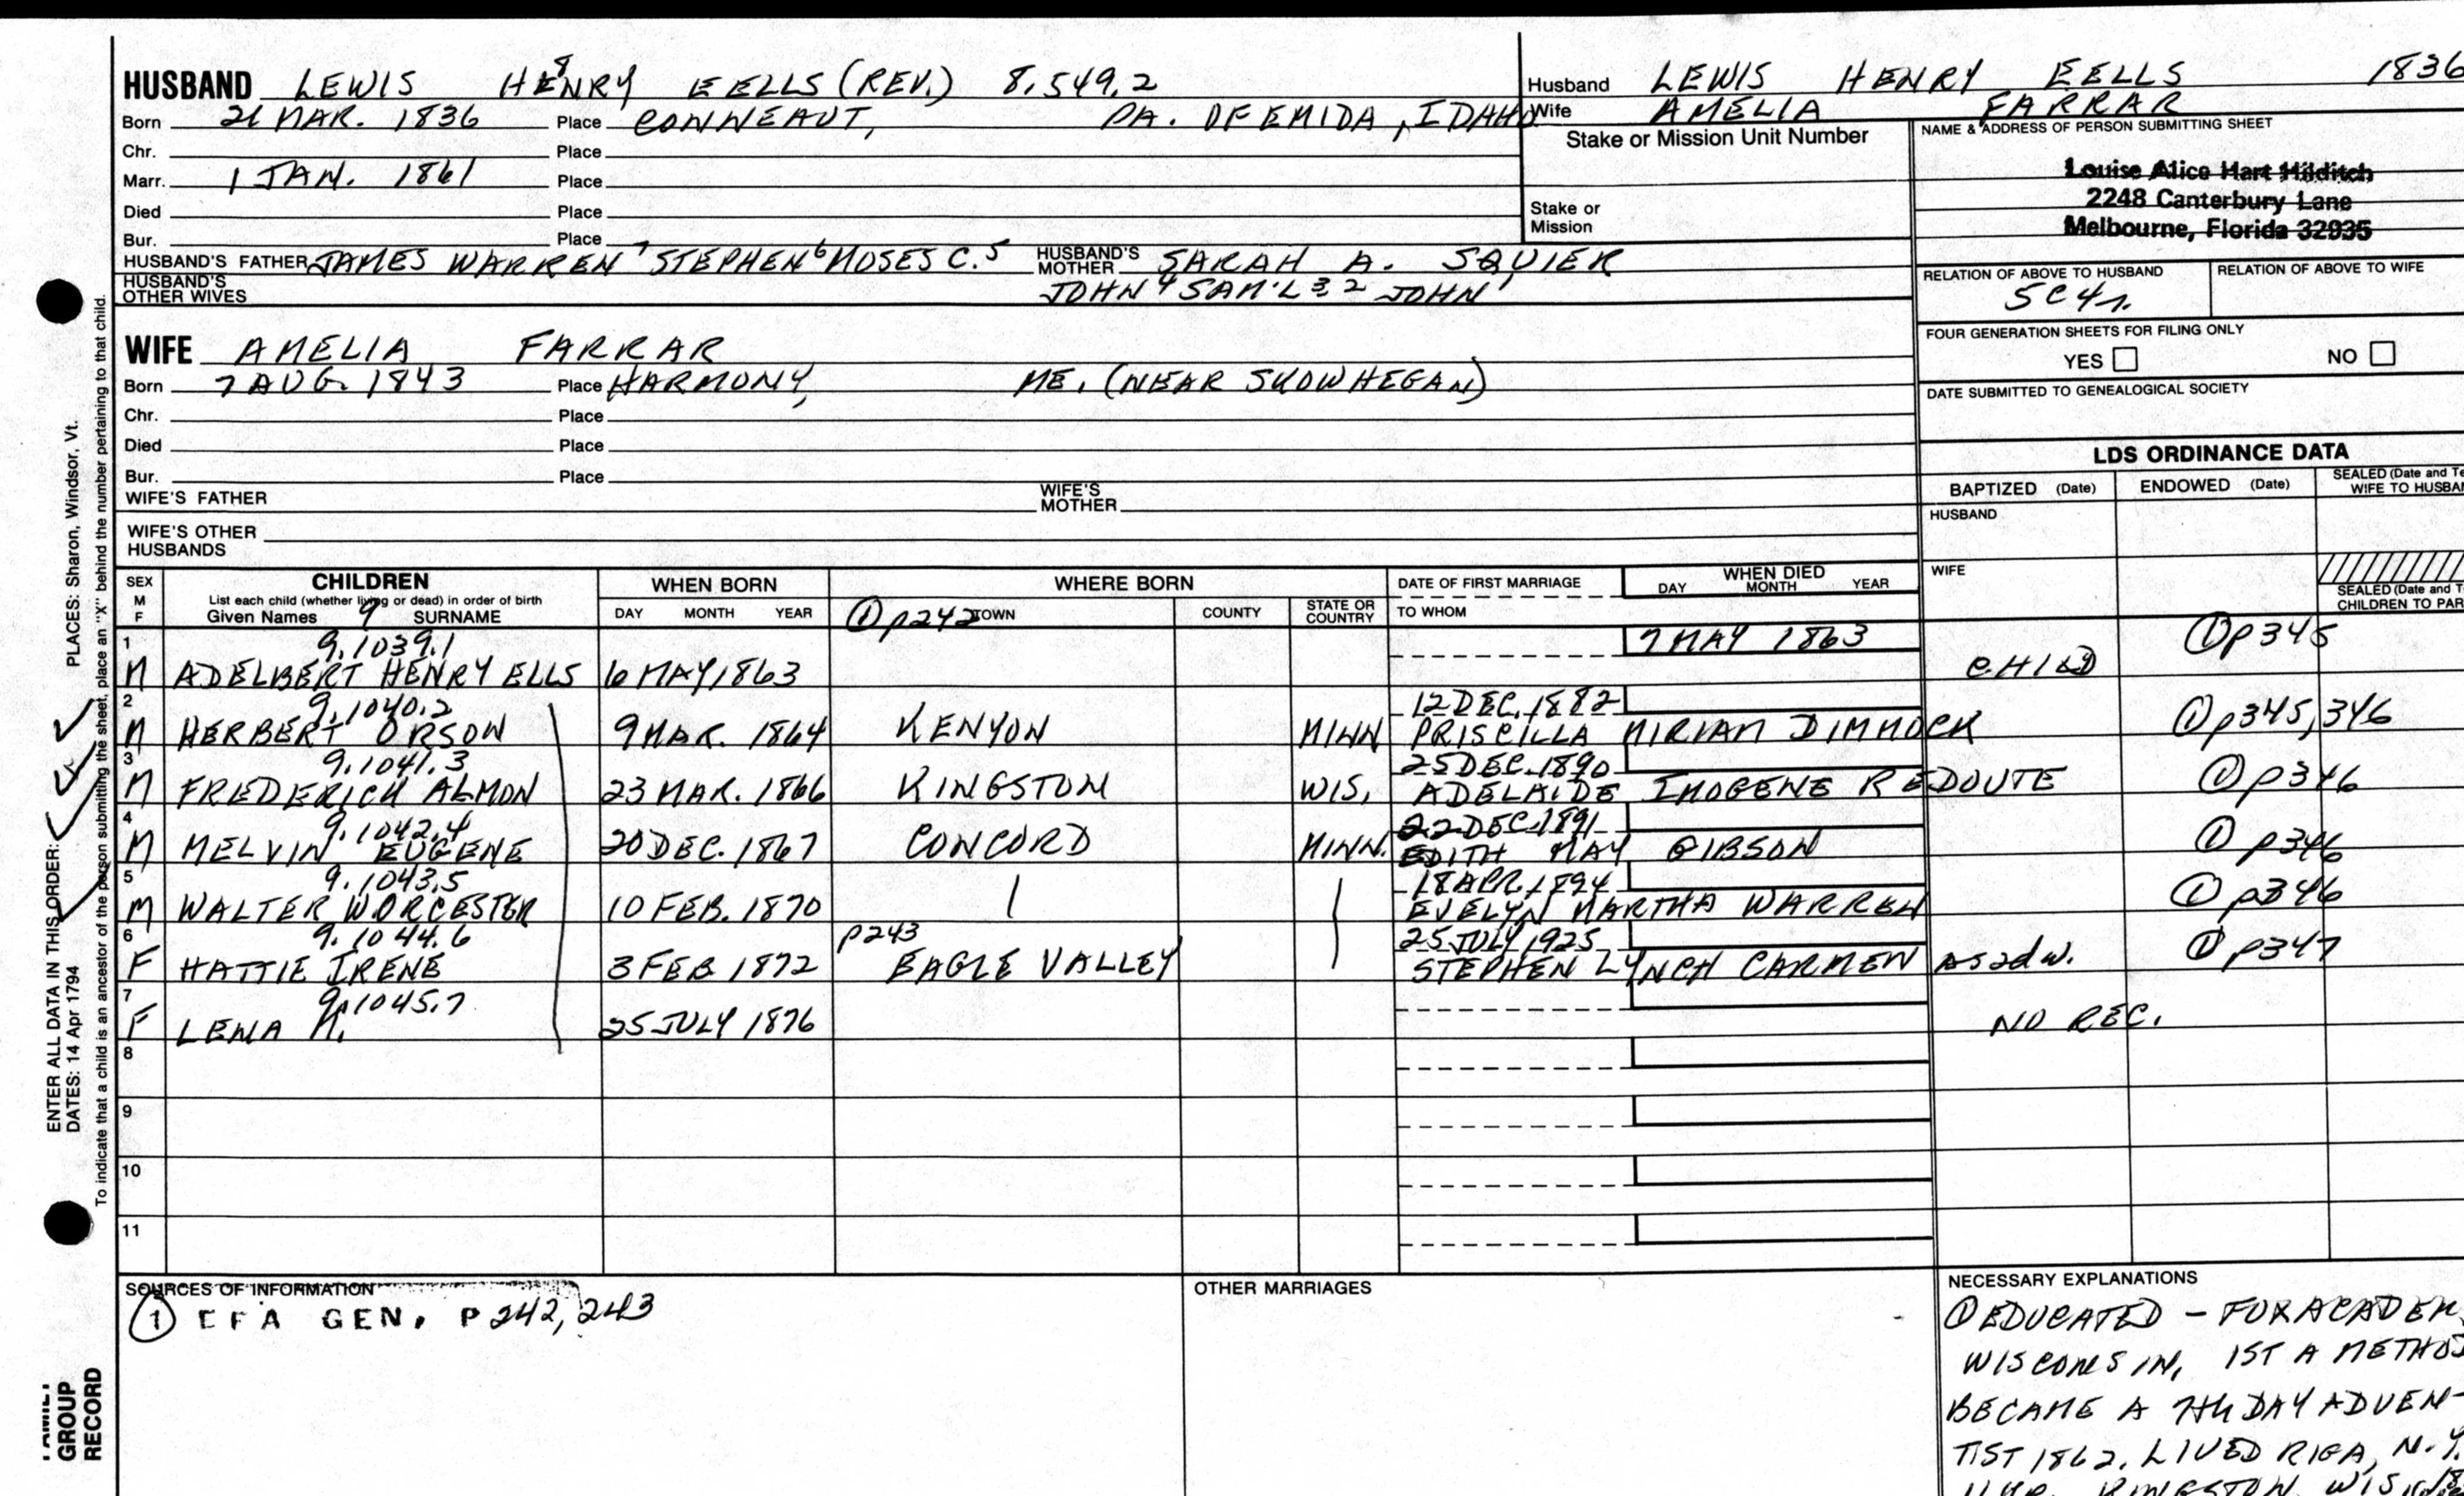 HUSBAND LEWIS HENRY 8 EELLS (REV.) 8.549.2
Born 21 MAR. 1836 Place CONNEAUT, PA. OF EMIDA, IDAHO
Chr. Place
Marr. 1 JAN. 1861 Place
Died Place
Bur. Place
HUSBAND'S FATHER JAMES WARREN 7 STEPHEN 6 MOSES C. 5 HUSBAND'S MOTHER SARAH A. SQUIER
HUSBAND'S OTHER WIVES JOHN 4 SAM'L 3 2 JOHN 1
WIFE AMELIA FARRAR
Born 7 AUG. 1843 Place HARMONY, ME. (NEAR SKOWHEGAN)
Chr. Place
Died Place
Bur. Place
WIFE'S FATHER WIFE'S MOTHER
WIFE'S OTHER HUSBANDS
Husband LEWIS HENRY EELLS 1836
Wife AMELIA FARRAR
Stake or Mission Unit Number
Stake or Mission
NAME & ADDRESS OF PERSON SUBMITTING SHEET
Louise Alice Hart Hilditch
2248 Canterbury Lane
Melbourne, Florida 32935
RELATION OF ABOVE TO HUSBAND RELATION OF ABOVE TO WIFE
5C4r.
FOUR GENERATION SHEETS FOR FILING ONLY
YES NO
DATE SUBMITTED TO GENEALOGICAL SOCIETY
LDS ORDINANCE DATA
BAPTIZED (Date) ENDOWED (Date) SEALED (Date and Te
WIFE TO HUSBA
HUSBAND
WIFE
SEALED (Date and T
CHILDREN TO PAR
SEX M F CHILDREN WHEN BORN WHERE BORN DATE OF FIRST MARRIAGE WHEN DIED
List each child (whether living or dead) in order of birth DAY MONTH YEAR
Given Names 9 SURNAME DAY MONTH YEAR ① p242 TOWN COUNTY STATE OR COUNTRY TO WHOM
1 9.1039.1 7 MAY 1863 ① p345
M ADELBERT HENRY ELLS 6 MAY 1863 CHILD
2 9.1040.2 12 DEC. 1882
M HERBERT ORSON 9 MAR. 1864 KENYON MINN PRISCILLA MIRIAM DIMMOCK ① p345, 346
3 9.1041.3 25 DEC. 1890
M FREDERICK ALMON 23 MAR. 1866 KINGSTON WIS. ADELAIDE IMOGENE REDOUTE ① p346
4 9.1042.4 22 DEC. 1891
M MELVIN EUGENE 20 DEC. 1867 CONCORD MINN. EDITH MAY GIBSON ① p346
5 9.1043.5 18 APR. 1894
M WALTER WORCESTER 10 FEB. 1870 EVELYN MARTHA WARREN ① p346
6 9.1044.6 p243 25 JULY 1925
F HATTIE IRENE 3 FEB 1872 EAGLE VALLEY STEPHEN LYNCH CARMEN as 2d w. ① p347
7 9.1045.7
F LENA M. 25 JULY 1876 NO REC.
8
9
10
11
SOURCES OF INFORMATION
① EFA GEN. P 242, 243
OTHER MARRIAGES
NECESSARY EXPLANATIONS
① EDUCATED - FOX ACADEM
WISCONSIN, 1ST A METHO
BECAME A 7th DAY ADVEN-
TIST 1862. LIVED RIGA, N.Y.
KINGSTON WIS.
ENTER ALL DATA IN THIS ORDER:
DATES: 14 Apr 1794 PLACES: Sharon, Windsor, Vt.
To indicate that a child is an ancestor of the person submitting the sheet, place an "X" behind the number pertaining to that child.
FAMILY
GROUP
RECORD